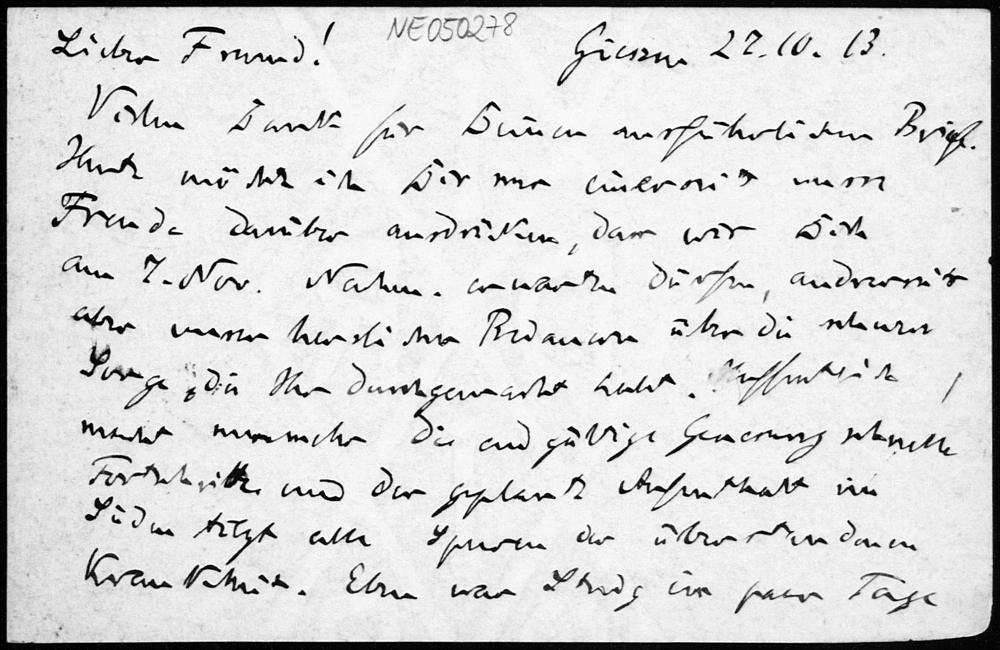 NE050278
Lieber Freund! Giessen 27.10.13.
Vielen Dank für Deinen ausführlichen Brief.
Heute möchte ich Dir nur einerseits unsere
Freude darüber ausdrücken, dass wir Dich
am 7. Nov. Nachm. erwarten dürfen, andrerseits
aber unser herzliches Bedauern über die schwere
Sorge, die Ihr durchgemacht habt. Hoffentlich
macht nunmehr die endgültige Genesung schnelle
Fortschritte und der geplante Aufenthalt im
Süden tilgt alle Spuren der überstandenen
Krankheit. Eben war ein paar Tage